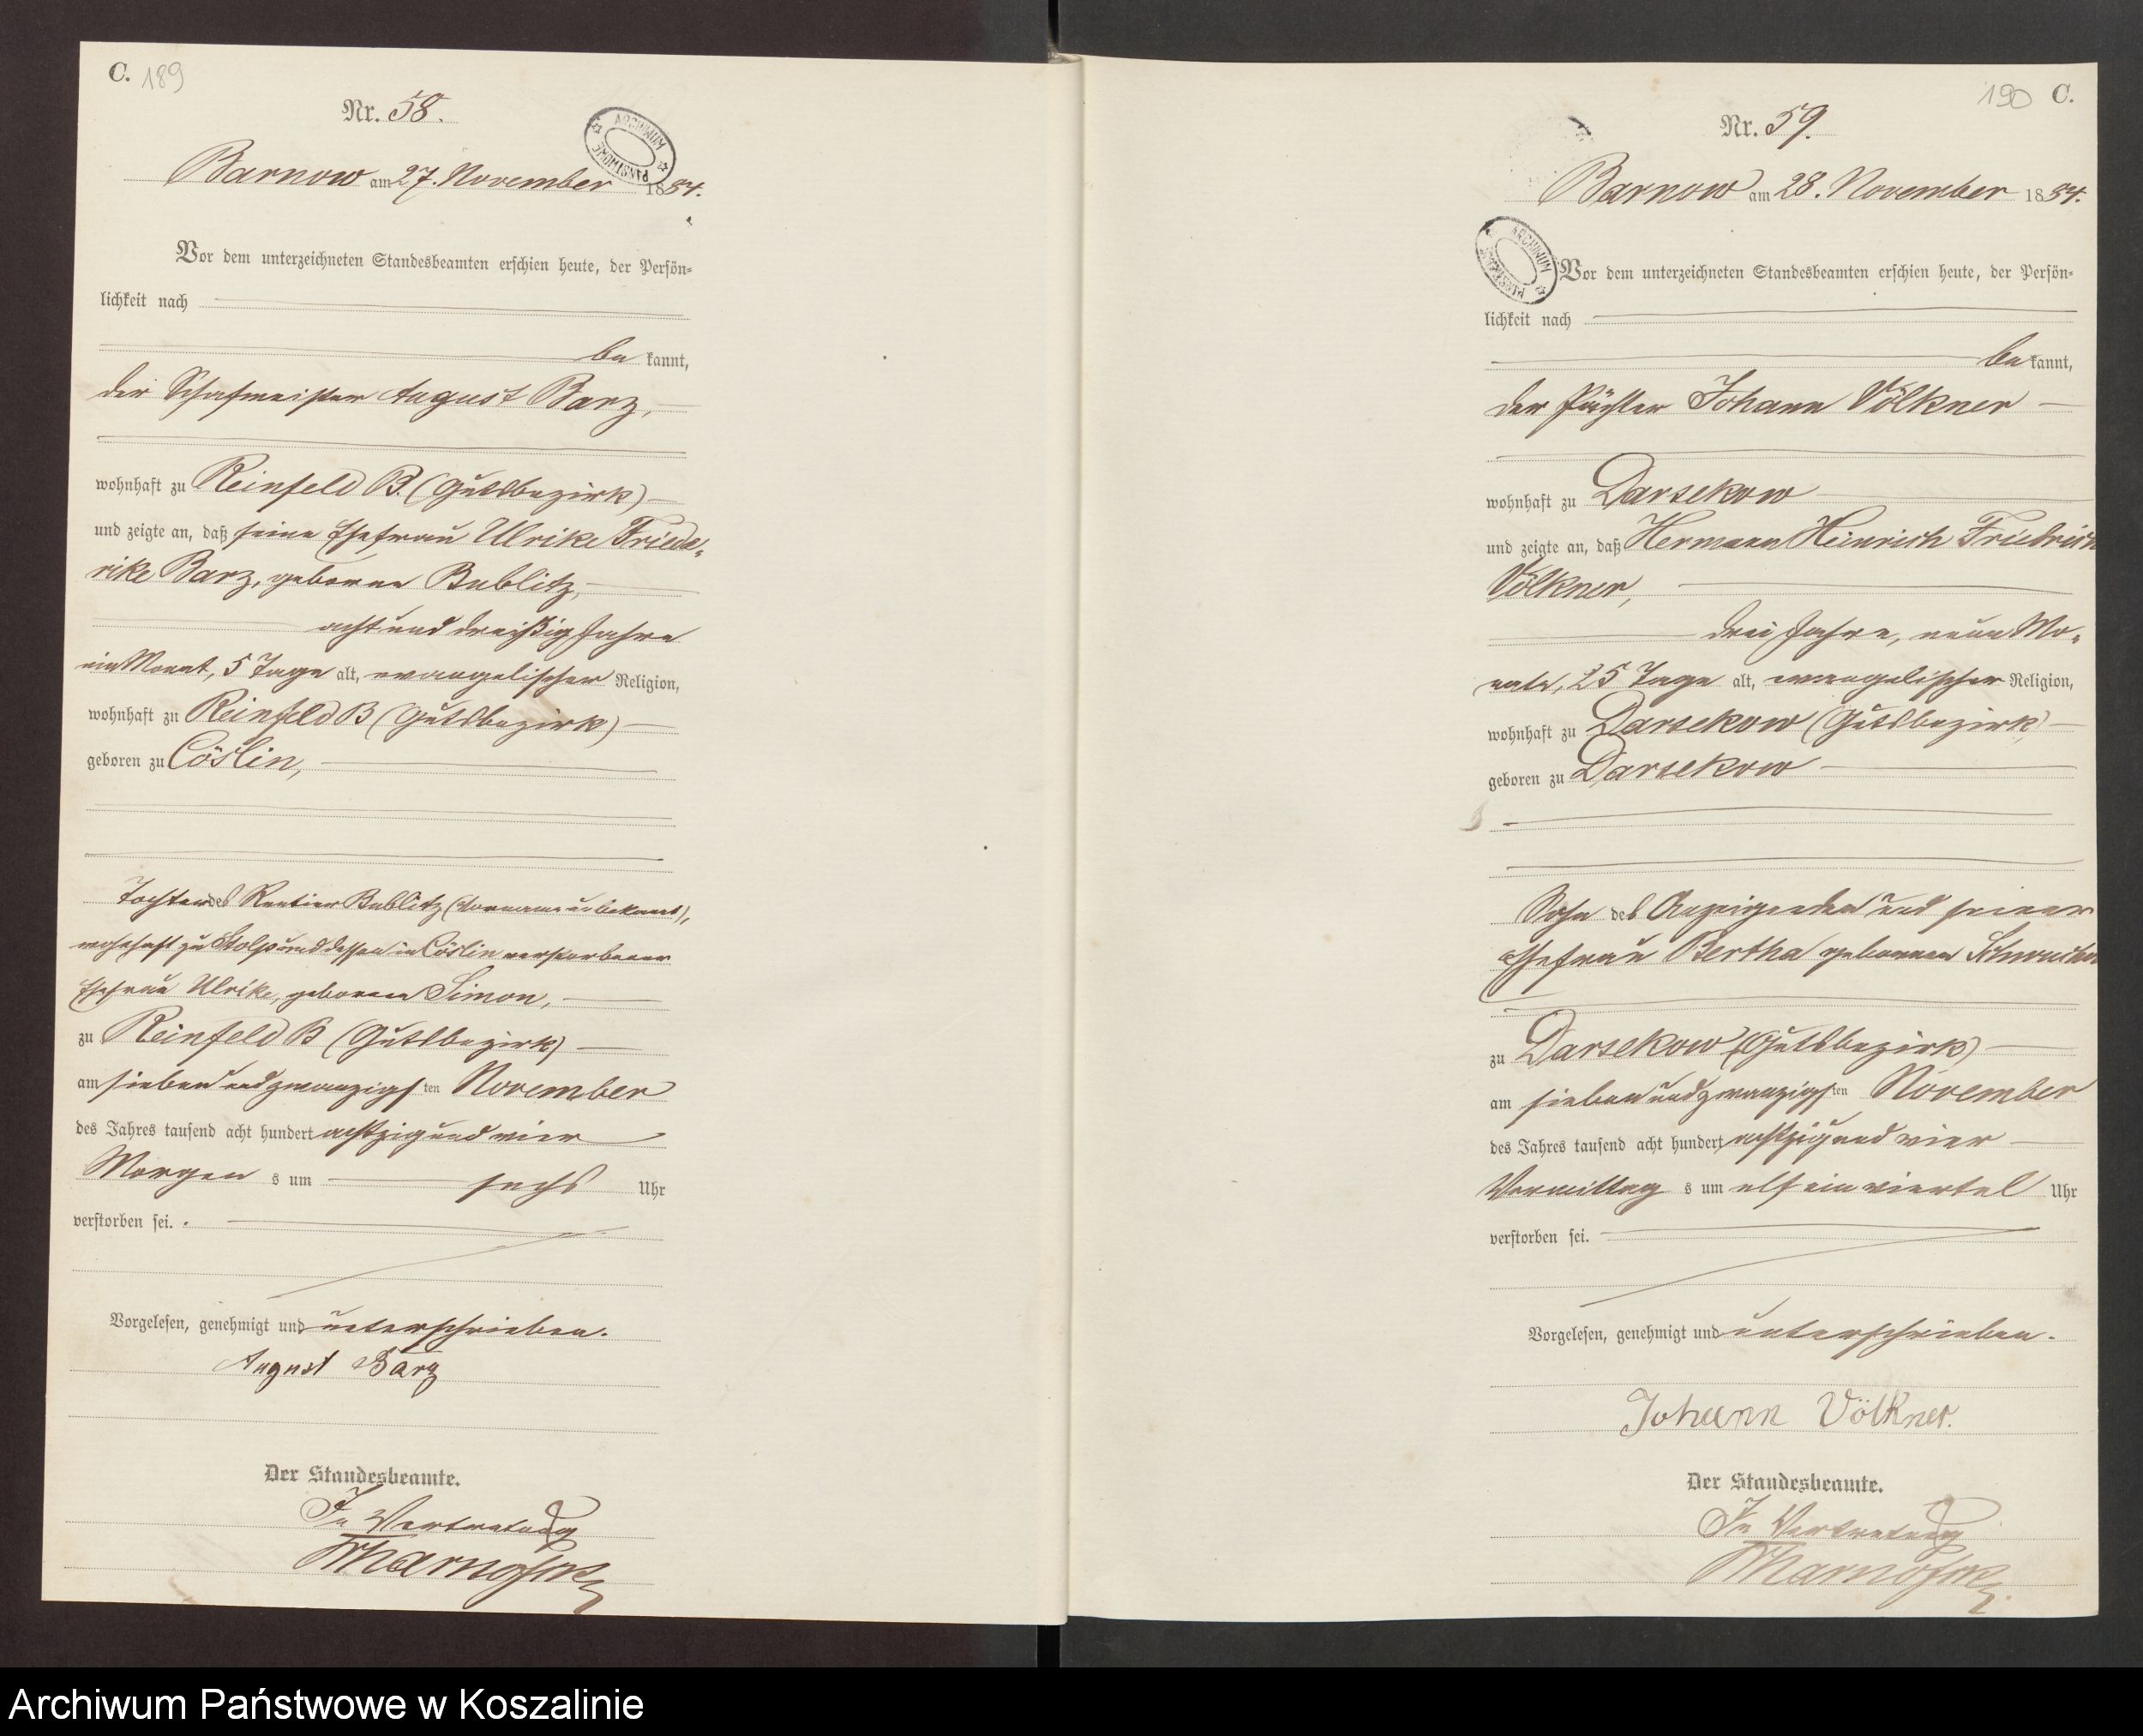 C. 189
Nr. 58.
ARCHIWUM PAŃSTWOWE
Barnow am 27. November 1884.
Vor dem unterzeichneten Standesbeamten erschien heute, der Persön-
lichkeit nach
be kannt,
der Schafmeister August Barz,
wohnhaft zu Reinfeld B. (Gutsbezirk)
und zeigte an, daß seine Ehefrau Ulrike Friede-
rike Barz, geborene Bublitz,
acht und dreißig Jahre
ein Monat, 5 Tage alt, evangelischer Religion,
wohnhaft zu Reinfeld B (Gutsbezirk)
geboren zu Cöslin,
Tochter des Rentier Bublitz (Vorname unbekannt),
wohnhaft zu Stolp und dessen in Cöslin verstorbener
Ehefrau Ulrike, geborene Simon,
zu Reinfeld B (Gutsbezirk)
am sieben und zwanzigsten November
des Jahres tausend acht hundert achtzig und vier
Morgen s um sechs Uhr
verstorben sei.
Vorgelesen, genehmigt und unterschrieben.
August Barz
Der Standesbeamte.
In Vertretung
190 C.
Nr. 59.
Barnow am 28. November 1884.
ARCHIWUM PAŃSTWOWE
Vor dem unterzeichneten Standesbeamten erschien heute, der Persön-
lichkeit nach
be kannt,
der Pächter Johann Völkner
wohnhaft zu Darsekow
und zeigte an, daß Hermann Heinrich Friedrich
Völkner,
drei Jahre, neun Mo-
nate, 25 Tage alt, evangelischer Religion,
wohnhaft zu Darsekow (Gutsbezirk)
geboren zu Darsekow
Sohn des Anzeigenden und seiner
Ehefrau Bertha geborenen
zu Darsekow (Gutsbezirk)
am sieben und zwanzigsten November
des Jahres tausend acht hundert achtzig und vier
Vormittag s um elf ein viertel Uhr
verstorben sei.
Vorgelesen, genehmigt und unterschrieben.
Johann Völkner.
Der Standesbeamte.
In Vertretung
Archiwum Państwowe w Koszalinie